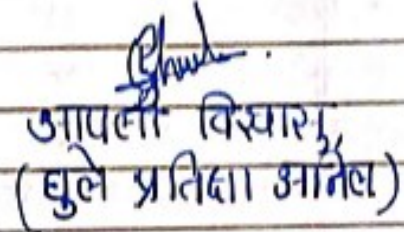 आपली विश्वासू,
(घुले प्रतिक्षा अनिल)